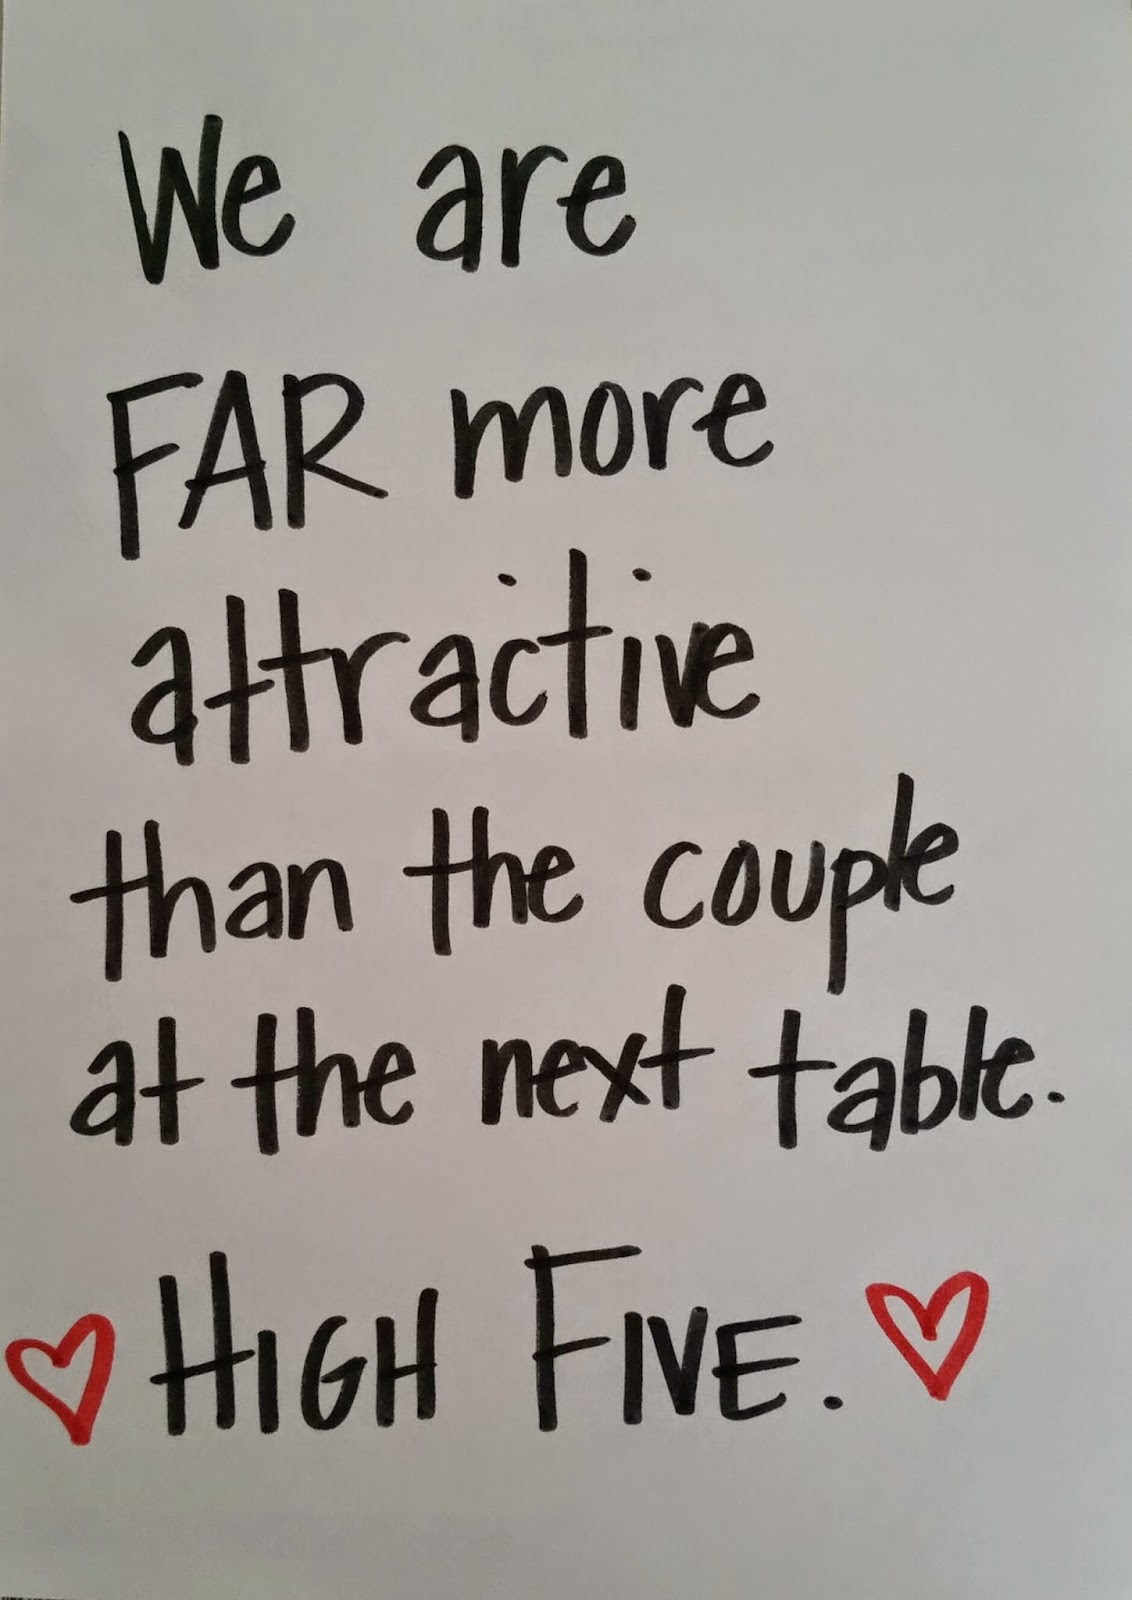 We are
FAR more
attractive
than the couple
at the next table.
HIGH FIVE.